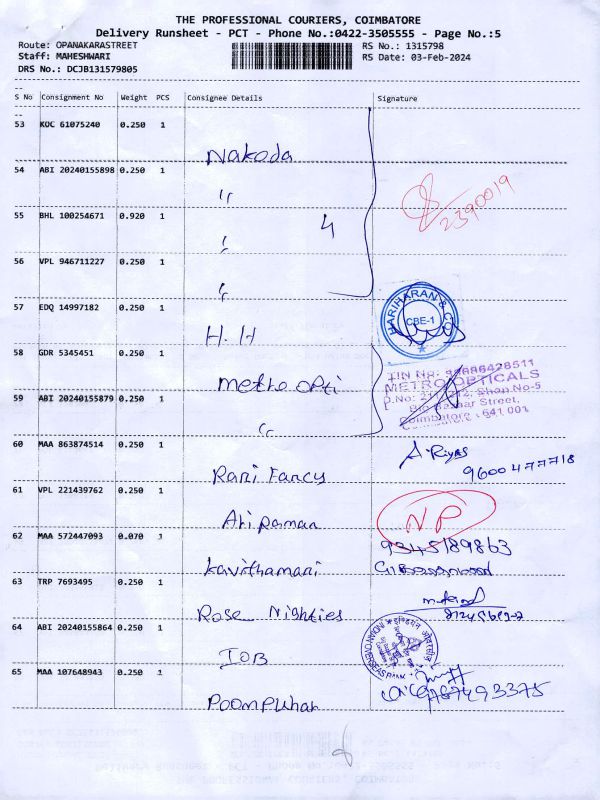 THE PROFESSIONAL COURIERS, COIMBATORE
Delivery Runsheet - PCT - Phone No.:0422-3505555 - Page No.:5
Route: OPANAKARASTREET
RS No.: 1315798
Staff: MAHESHWARI
RS Date: 03-Feb-2024
DRS No.: DCJB131579805
S No Consignment No Weight PCS Consignee Details Signature
53 KOC 61075240 0.250 1
Nakoda
54 ABI 20240155898 0.250 1
"
2390019
55 BHL 100254671 0.920 1
4
"
56 VPL 946711227 0.250 1
"
57 EDQ 14997182 0.250 1
HARIHARAN & CO
CBE-1
H.H
58 GDR 5345451 0.250 1
metro opti
METRO OPTICALS
Big Bazaar Street,
Coimbatore - 641 001
59 ABI 20240155879 0.250 1
"
60 MAA 863874514 0.250 1
A.Riyas
9600477718
Rani Fancy
61 VPL 221439762 0.250 1
NP
Atiraman
62 MAA 572447093 0.070 1
9345189863
kavithamani
63 TRP 7693495 0.250 1
Rose Nighties
64 ABI 20240155864 0.250 1
INDIAN OVERSEAS BANK
IOB
65 MAA 107648943 0.250 1
9787493375
Poompuhar